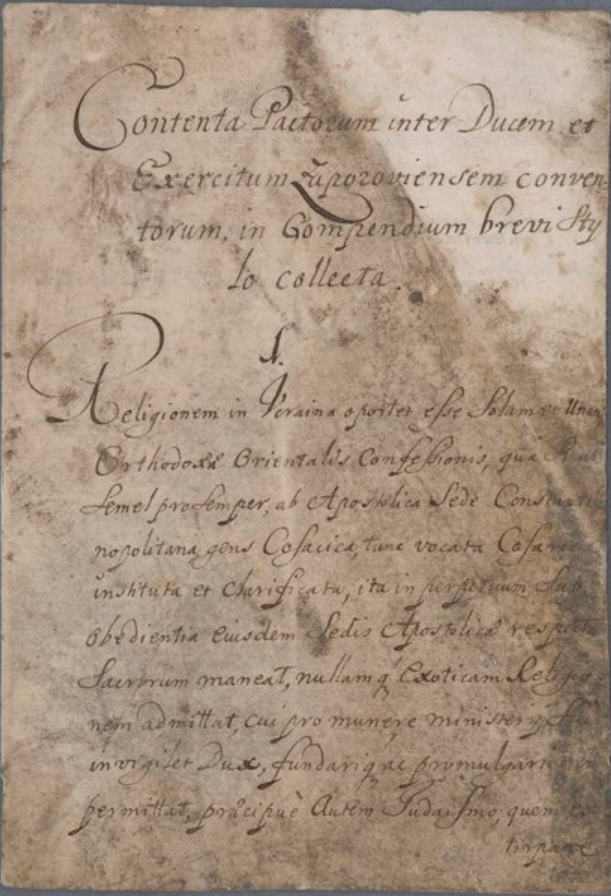 Contenta Pactorum inter Ducem et
Exercitum Zaporoviensem conven
torum, in Compendium brevi Sty
lo collecta.
1.
Religionem in Ucraina oportet esse Solam et Unam
Orthodoxæ Orientalis Confessionis, quâ
semel pro semper, ab Apostolica Sede Constanti
nopolitana, gens Cosacica, tunc vocata
instituta et clarificata, ita in perpetuum Sub
obedientia eiusdem Sedis Apostolicæ respectu
Sacrorum maneat, nullamq́ Exoticam Religio
nem admittat, cui pro munere ministerij
invigilet Dux, fundariq́ ac promulgari non
permittat, præcipuè Autem Judaismo, quem
tirpare